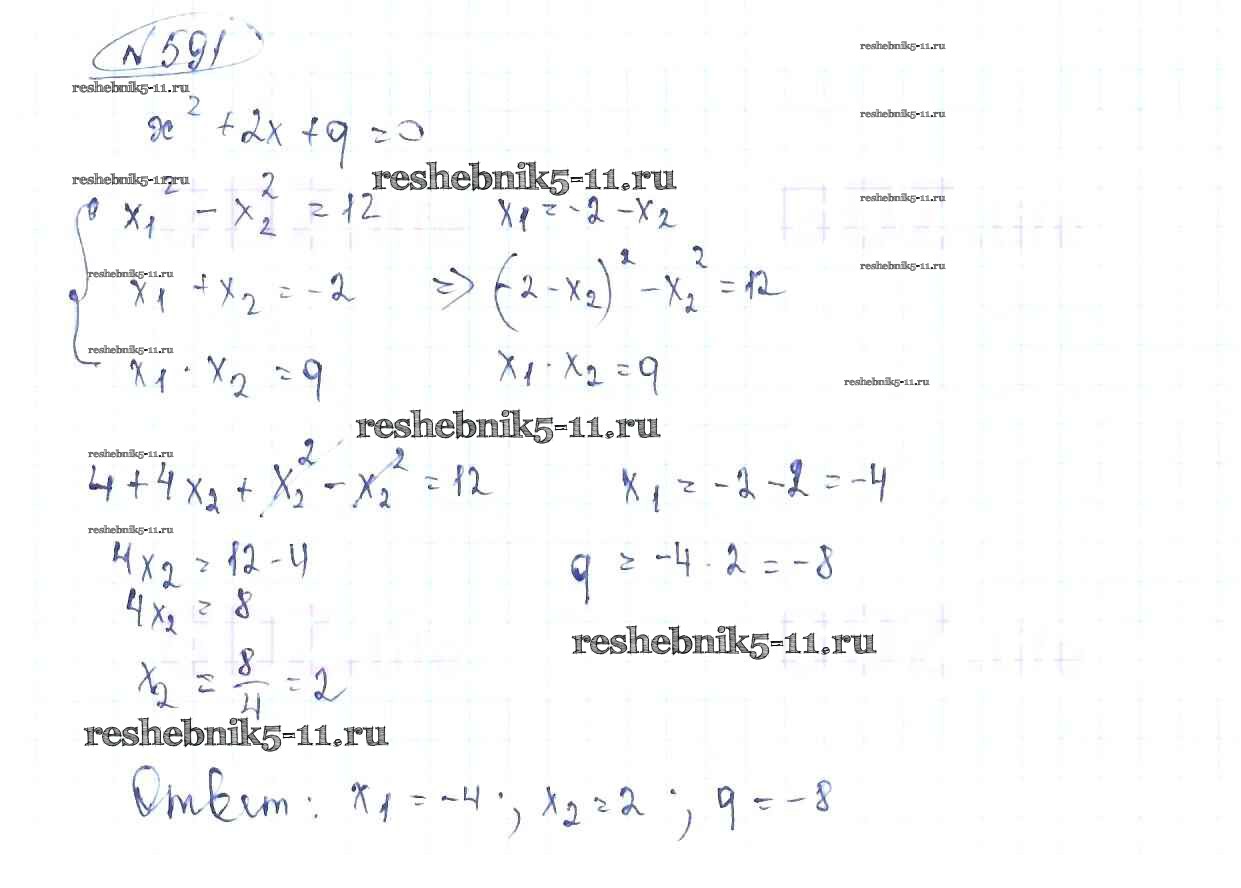 N 591
reshebnik5-11.ru
reshebnik5-11.ru
x² + 2x + q = 0
reshebnik5-11.ru
reshebnik5-11.ru
reshebnik5-11.ru
x₁² - x₂² = 12 x₁ = -2 - x₂
reshebnik5-11.ru
reshebnik5-11.ru
reshebnik5-11.ru
x₁ + x₂ = -2 => (-2 - x₂)² - x₂² = 12
reshebnik5-11.ru
x₁ · x₂ = q x₁ · x₂ = q
reshebnik5-11.ru
reshebnik5-11.ru
reshebnik5-11.ru
4 + 4x₂ + x₂² - x₂² = 12 x₁ = -2 - 2 = -4
reshebnik5-11.ru
4x₂ = 12 - 4 q = -4 · 2 = -8
4x₂ = 8
reshebnik5-11.ru
x₂ = 8/4 = 2
reshebnik5-11.ru
Ответ: x₁ = -4; x₂ = 2; q = -8